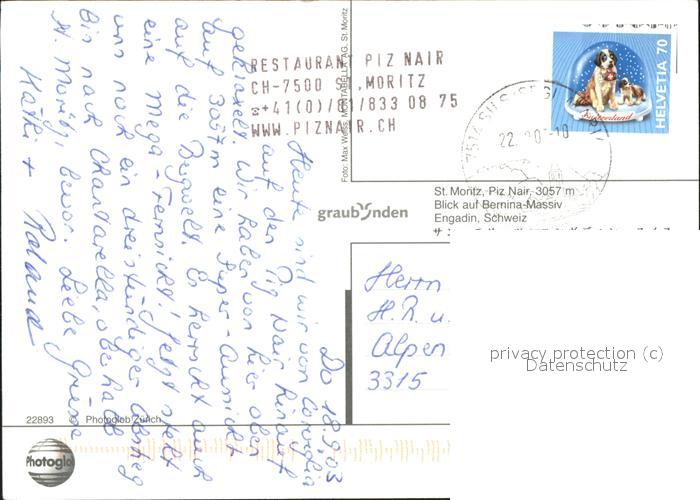 Do 18.9.03
Heute sind wir von Corviglia
auf den Piz Nair hinauf
gekraxelt. Wir haben von hier oben
auf 3057m eine Super-Aussicht
auf die Bergwelt. Es herrscht auch
eine Mega-Fernsicht! Jetzt steht
uns noch ein dreistündiger Abstieg
bis nach Chantarella, oberhalb
St. Moritz, bevor. Liebe Grüsse
Käthi + Roland
RESTAURANT PIZ NAIR
CH-7500 ST.MORITZ
+41(0)/81/833 08 75
WWW.PIZNAIR.CH
Foto: Max Weiss, MONTABELLA AG, St. Moritz
HELVETIA 70
Switzerland
7514 SILS/SEGL
22. 
St. Moritz, Piz Nair, 3057 m
Blick auf Bernina-Massiv
Engadin, Schweiz
graubünden
Herrn
H.R. u.
Alpen
3315
privacy protection (c)
Datenschutz
22893 Photoglob Zürich
Photoglob